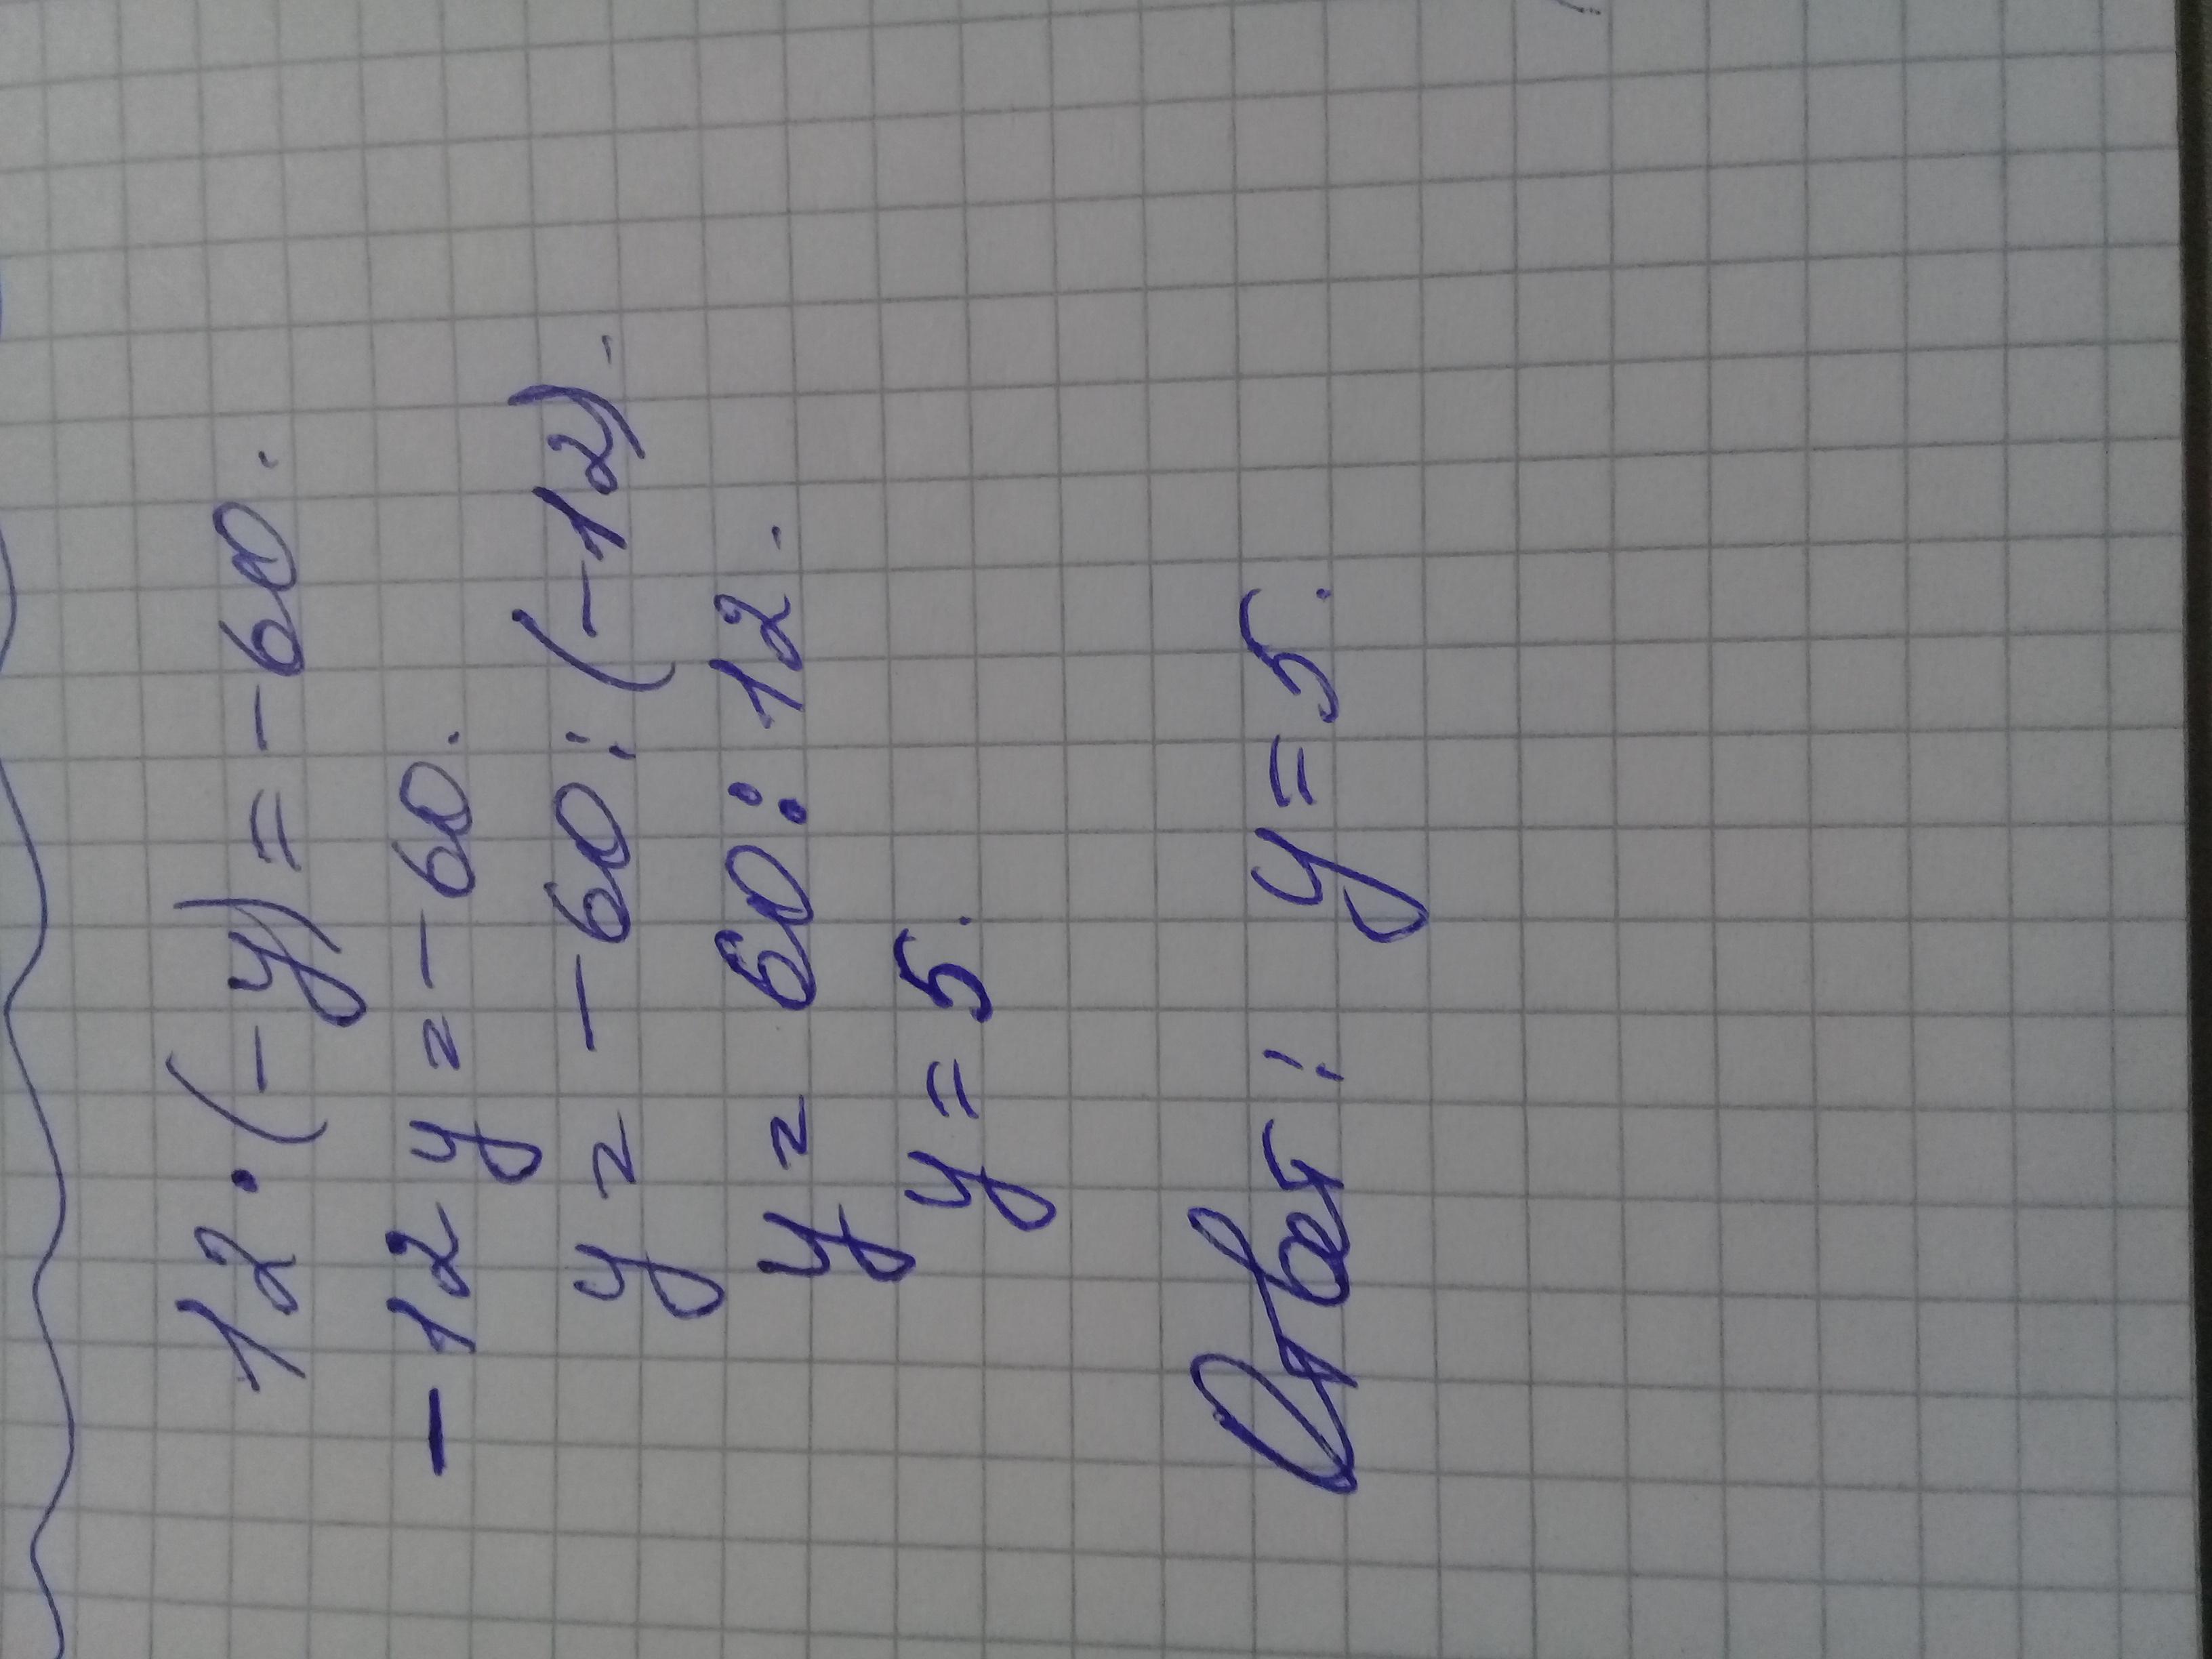 12 · (-y) = -60.
-12y = -60.
y = -60 : (-12).
y = 60 : 12.
y = 5.
Ответ: y = 5.